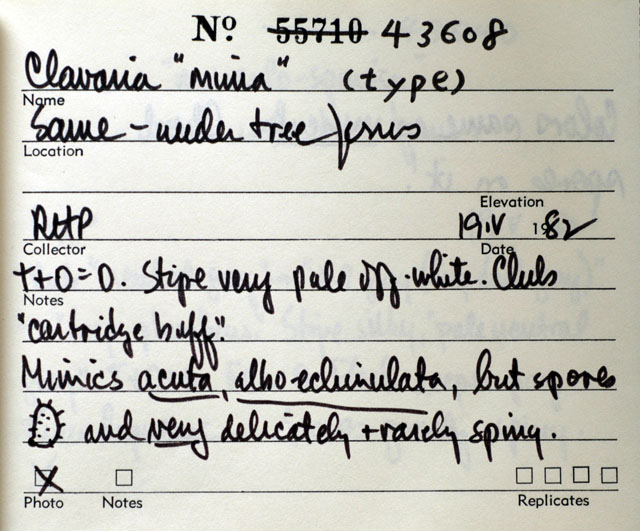 Nº 55710 43608
Clavaria "mima" (type)
Name
Same - under tree ferns
Location
Elevation
RHP 19.V 1982
Collector Date
T+O=O. Stipe very pale off-white. Clubs
Notes
"cartridge buff".
Mimics acuta, albo-echinulata, but spores
and very delicately + rarely spiny.
Photo Notes Replicates